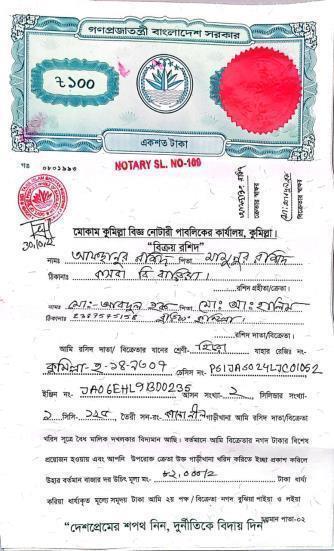 গণপ্রজাতন্ত্রী বাংলাদেশ সরকার
৳১০০
একশত টাকা
গঙ ০৮০১৯৯৩
NOTARY SL. NO-109
৩০/১০/২
মোকাম কুমিল্লা বিজ্ঞ নোটারী পাবলিকের কার্যালয়, কুমিল্লা।
"বিক্রয় রশিদ"
নামঃ রশিদ পিতা রশিদ
ঠিকানাঃ কসবা বি বাড়িয়া।
রশিদ গ্রহীতা/ক্রেতা।
নামঃ মোঃ- আবদুল হক পিতা মোঃ আঃ হালিম
ঠিকানাঃ
রশিদ দাতা/বিক্রেতা।
আমি রশিদ দাতা/ বিক্রেতার যানের শ্রেণী- হিরো যাহার রেজিঃ নং-
কুমিল্লা-হ-১৪-২৬০৭ চেসিস নং-
ইঞ্জিন নং- JA06EHL9B00235 আসন সংখ্যা- ২ সিলিন্ডার সংখ্যা-
১ সিসি- ১২৫ তৈরী সন-রং- গাড়ীখানা আমি রশিদ দাতা/বিক্রেতা
খরিদ সূত্রে বৈধ মালিক দখলকার বিদ্যমান আছি। বর্তমানে আমি বিক্রেতার নগদ টাকার বিশেষ
প্রয়োজন হওয়ায় এবং আপনি উপরোক্ত ক্রেতা উক্ত গাড়ীখানা খরিদ করিতে ইচ্ছা প্রকাশ করিলে
উহার বর্তমান বাজার দর উচিৎ মূল্য মং- ৮২,০০০/২ টাকা ধার্য্য
করিয়া ধার্য্যকৃত মূল্যে সমুদয় টাকা আমি ২য় পক্ষ / বিক্রেতা নগদ বুঝিয়া পাইয়া ও লইয়া
চলমান পাতা-০২
"দেশপ্রেমের শপথ নিন, দুর্নীতিকে বিদায় দিন"